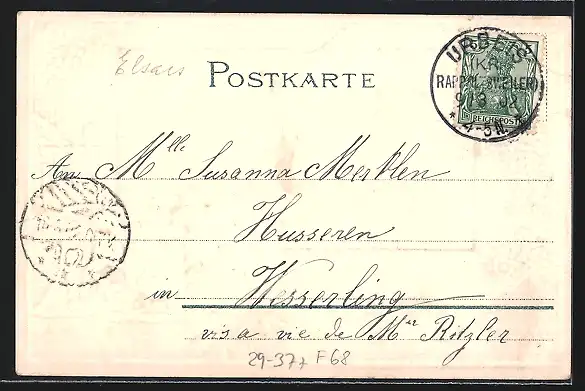 Elsass
POSTKARTE
URBEIS
(KR.
RAPPOLTSWEILER)
* 4-5N. *
REICHSPOST
An Mlle Susanna Merklen
Husseren
in Wesserling
vis a vie de Mr Ritzler
29-377 F68